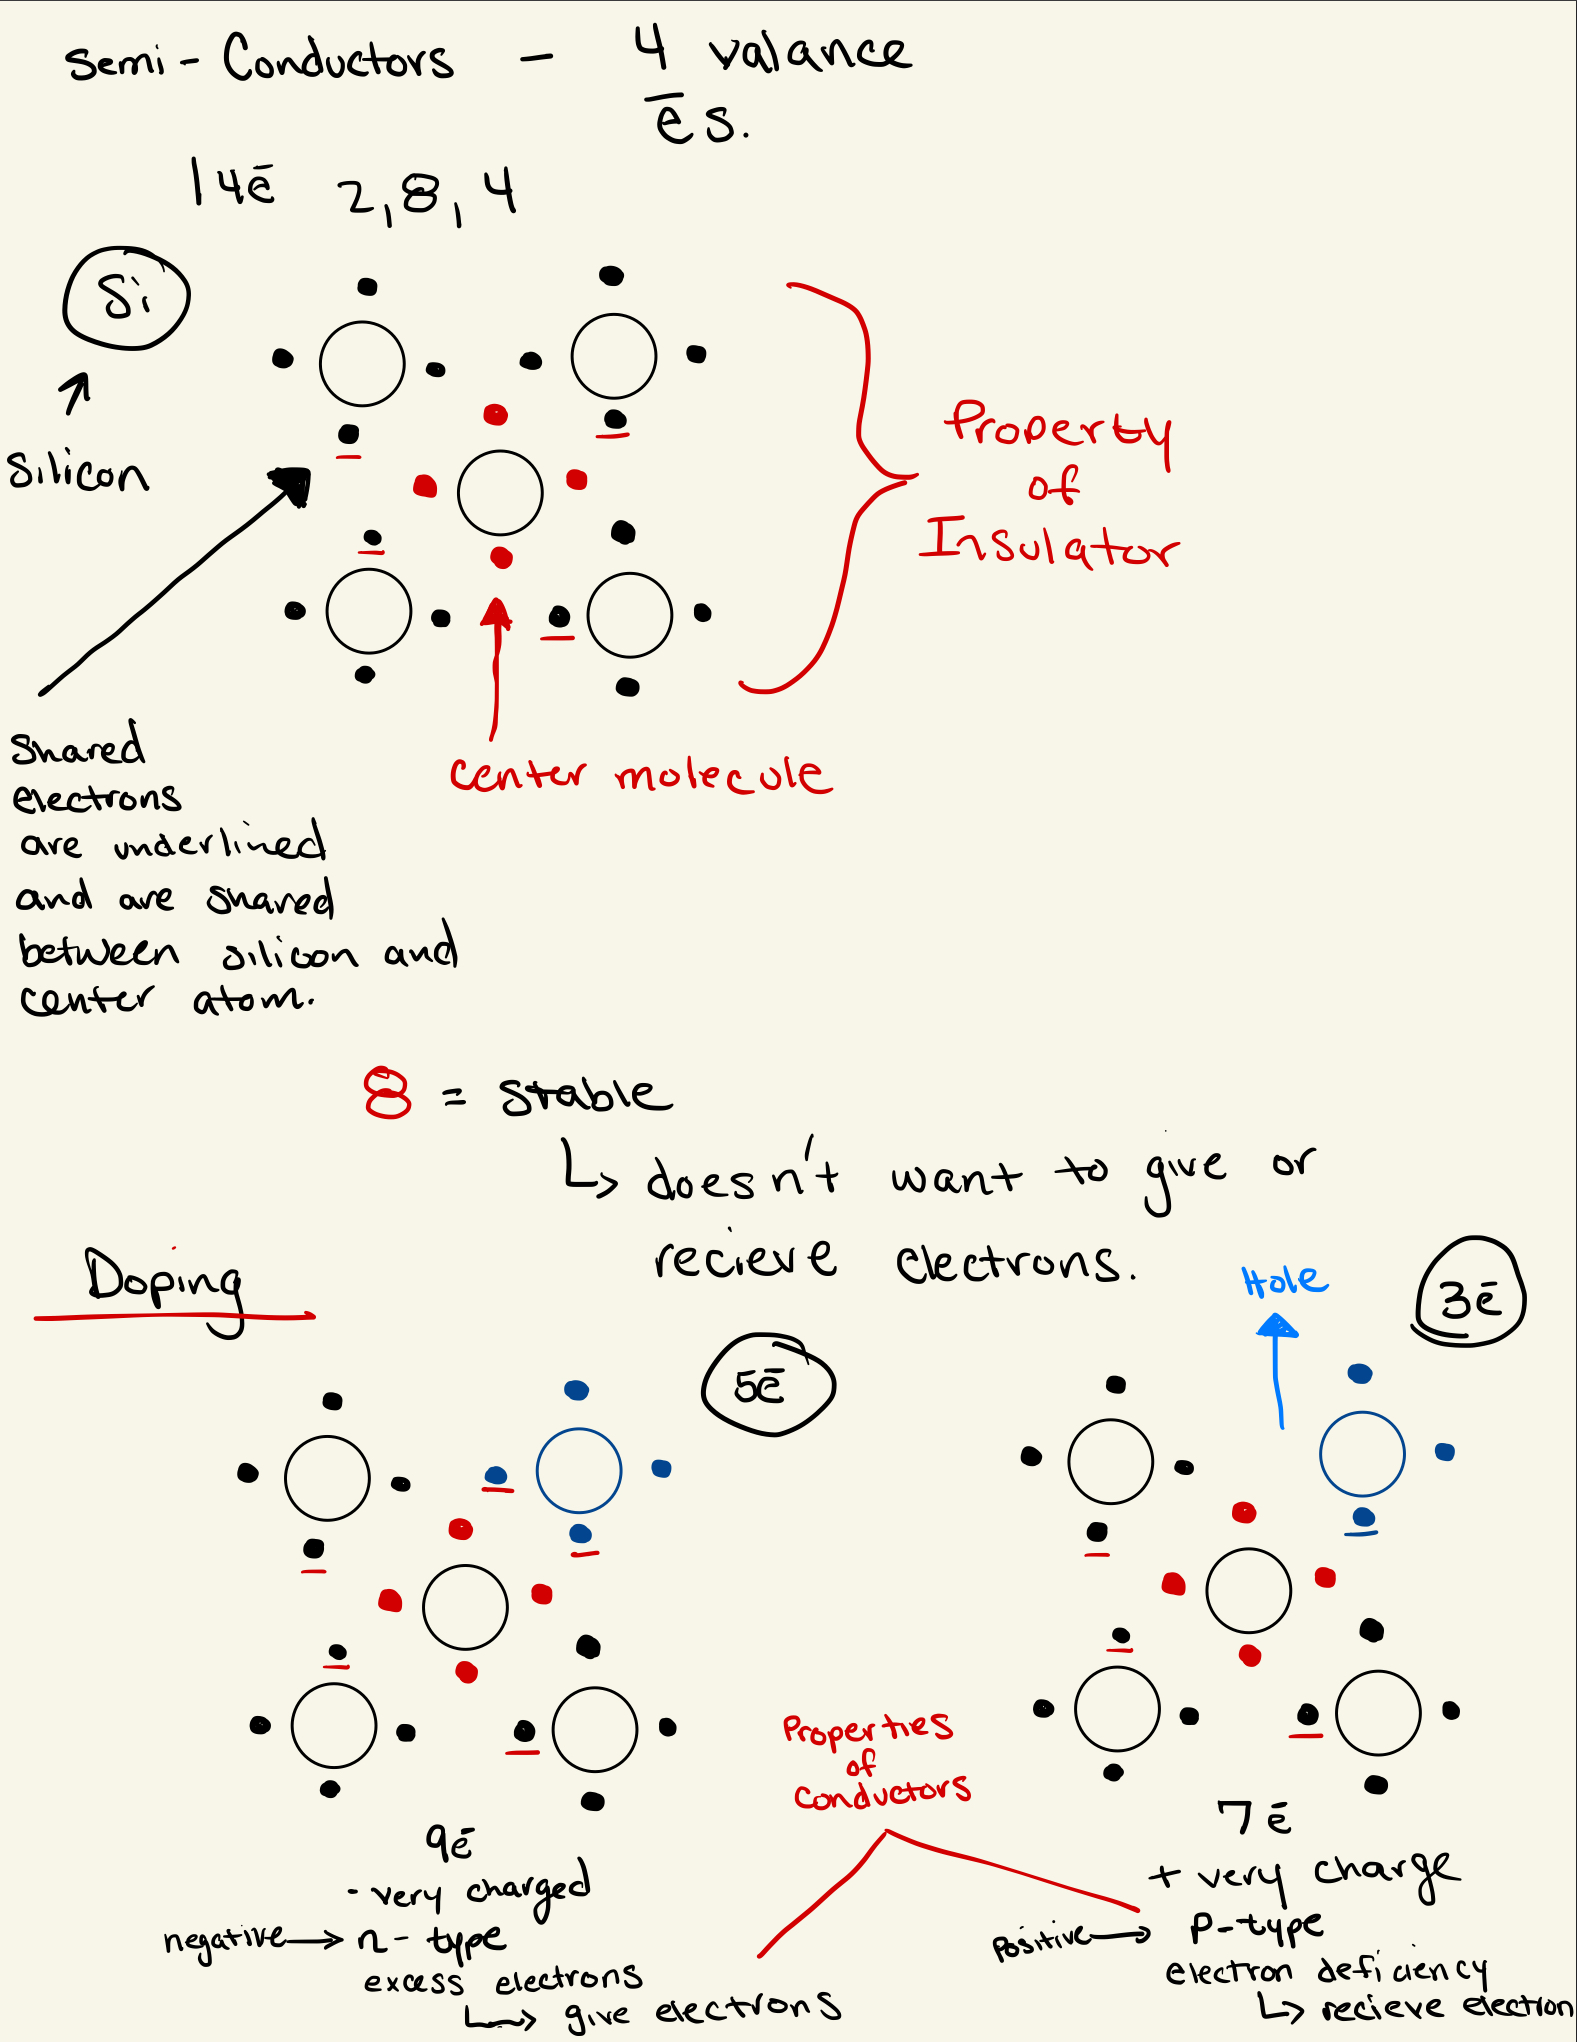 Semi-Conductors - 4 valance
ēs.
14ē 2,8,4
Si
Silicon
Property
of
Insulator
Center molecule
Shared
electrons
are underlined
and are shared
between silicon and
center atom.
8 = stable
↳ doesn't want to give or
recieve electrons.
Doping
Hole
3ē
5ē
Properties
of
Conductors
9ē
- very charged
negative → n-type
excess electrons
↳ give electrons
7ē
+ very charge
positive → P-type
electron deficiency
↳ recieve electron